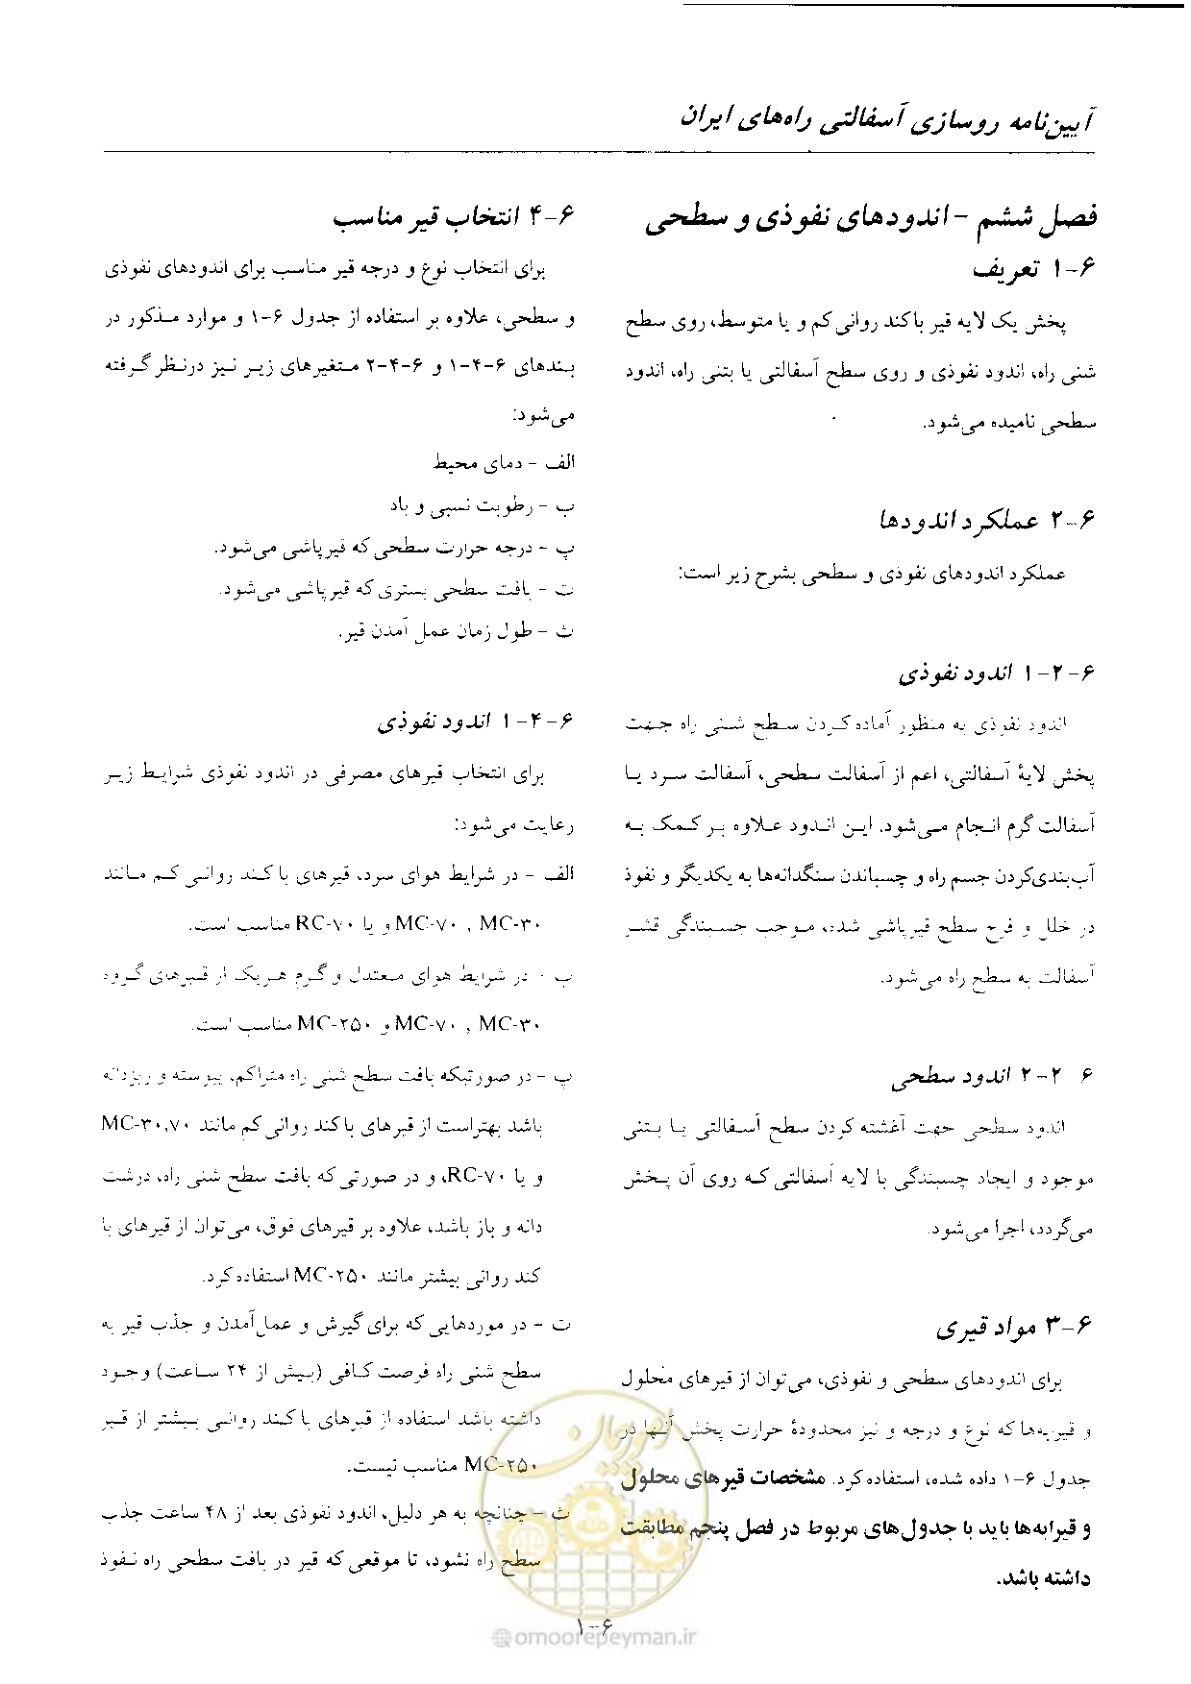 آیین‌نامه روسازی آسفالتی راه‌های ایران
فصل ششم - اندودهای نفوذی و سطحی
۶-۱ تعریف
پخش یک لایه قیر با کند روانی کم و یا متوسط، روی سطح
شنی راه، اندود نفوذی و روی سطح آسفالتی یا بتنی راه، اندود
سطحی نامیده می‌شود.
۶-۲ عملکرد اندودها
عملکرد اندودهای نفوذی و سطحی بشرح زیر است:
۶-۲-۱ اندود نفوذی
اندود نفوذی به منظور آماده کردن سطح شنی راه جهت
پخش لایۀ آسفالتی، اعم از آسفالت سطحی، آسفالت سرد یا
آسفالت گرم انجام می‌شود. این اندود علاوه بر کمک به
آب‌بندی‌کردن جسم راه و چسباندن سنگدانه‌ها به یکدیگر و نفوذ
در خلل و فرج سطح قیرپاشی شده، موجب چسبندگی قشر
آسفالت به سطح راه می‌شود.
۶ ۲-۲ اندود سطحی
اندود سطحی جهت آغشته کردن سطح آسفالتی یا بتنی
موجود و ایجاد چسبندگی با لایه آسفالتی که روی آن پخش
می‌گردد، اجرا می‌شود.
۶-۳ مواد قیری
برای اندودهای سطحی و نفوذی، می‌توان از قیرهای محلول
و قیرابه‌ها که نوع و درجه و نیز محدودۀ حرارت پخش آنها در
جدول ۶-۱ داده شده، استفاده کرد. مشخصات قیرهای محلول
و قیرابه‌ها باید با جدول‌های مربوط در فصل پنجم مطابقت
داشته باشد.
۶-۴ انتخاب قیر مناسب
برای انتخاب نوع و درجه قیر مناسب برای اندودهای نفوذی
و سطحی، علاوه بر استفاده از جدول ۶-۱ و موارد مذکور در
بندهای ۶-۴-۱ و ۶-۴-۲ متغیرهای زیر نیز درنظر گرفته
می‌شود:
الف - دمای محیط
ب - رطوبت نسبی و باد
پ - درجه حرارت سطحی که قیرپاشی می‌شود.
ت - بافت سطحی بستری که قیرپاشی می‌شود.
ث - طول زمان عمل آمدن قیر.
۶-۴-۱ اندود نفوذی
برای انتخاب قیرهای مصرفی در اندود نفوذی شرایط زیر
رعایت می‌شود:
الف - در شرایط هوای سرد، قیرهای با کند روانی کم مانند
MC-۳۰ , MC-۷۰ و یا RC-۷۰ مناسب است.
ب - در شرایط هوای معتدل و گرم هریک از قیرهای گروه
MC-۳۰ , MC-۷۰ و MC-۲۵۰ مناسب است.
پ - در صورتیکه بافت سطح شنی راه متراکم، پیوسته و ریزدانه
باشد بهتراست از قیرهای با کند روانی کم مانند MC-۳۰,۷۰
و یا RC-۷۰، و در صورتی که بافت سطح شنی راه، درشت
دانه و باز باشد، علاوه بر قیرهای فوق، می‌توان از قیرهای با
کند روانی بیشتر مانند MC-۲۵۰ استفاده کرد.
ت - در موردهایی که برای گیرش و عمل‌آمدن و جذب قیر به
سطح شنی راه فرصت کافی (بیش از ۲۴ ساعت) وجود
داشته باشد استفاده از قیرهای با کند روانی بیشتر از قیر
MC-۲۵۰ مناسب نیست.
ث - چنانچه به هر دلیل، اندود نفوذی بعد از ۴۸ ساعت جذب
سطح راه نشود، تا موقعی که قیر در بافت سطحی راه نفوذ
۶-۱
امور پیمان
@omoorepeyman.ir